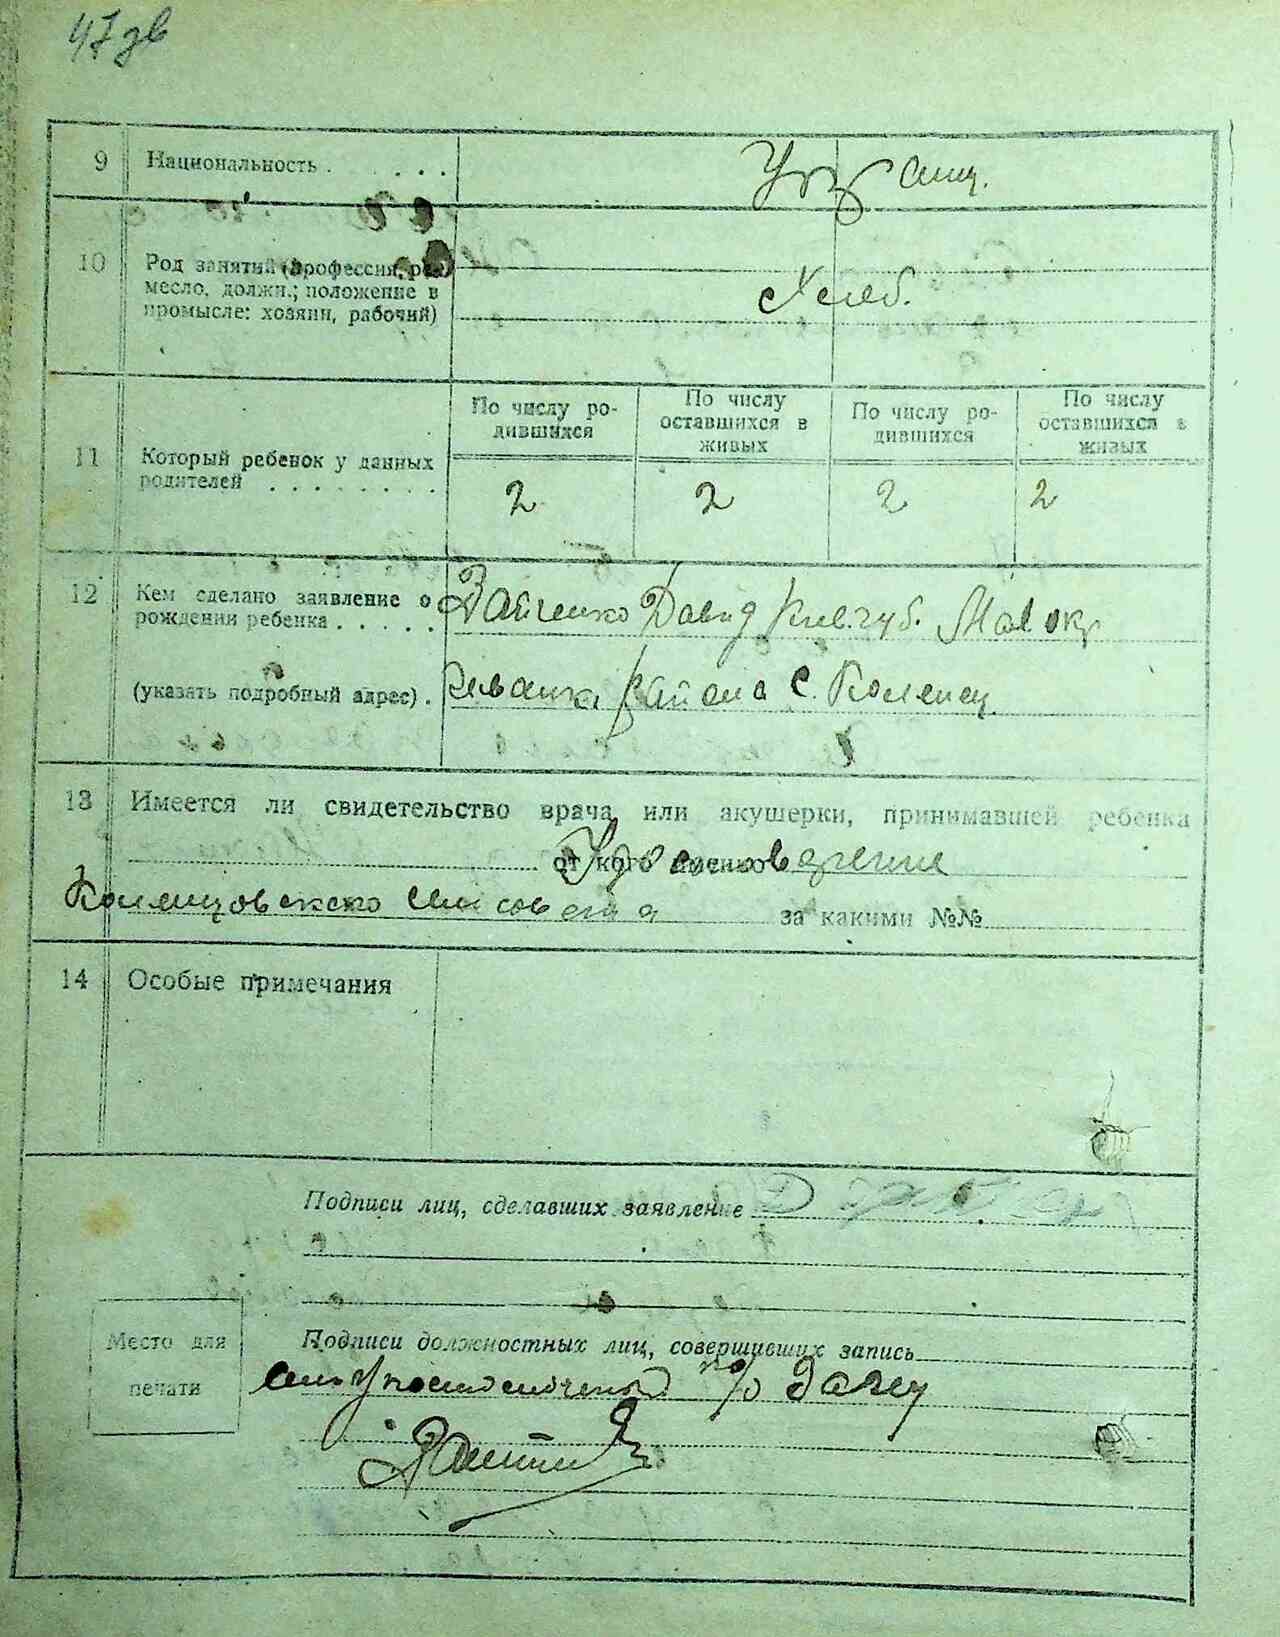 47 зв
9 Национальность . . . . .
Украин.
10 Род занятий (профессия, ре-
месло, должн.; положение в
промысле: хозяин, рабочий)
Хлеб.
11 Который ребенок у данных
родителей . . . . . . . .
По числу ро-
дившихся
По числу
оставшихся в
живых
По числу ро-
дившихся
По числу
оставшихся в
живых
2 2 2 2
12 Кем сделано заявление о
рождении ребенка . . . . .
Зайченко Давид Киев. губ. Мал окр
(указать подробный адрес) .
района с.
13 Имеется ли свидетельство врача или акушерки, принимавшей ребенка
от кого именно Удостоверение
сельсовета за какими №№
14 Особые примечания
Подписи лиц, сделавших заявление
Место для
печати
Подписи должностных лиц, совершивших запись